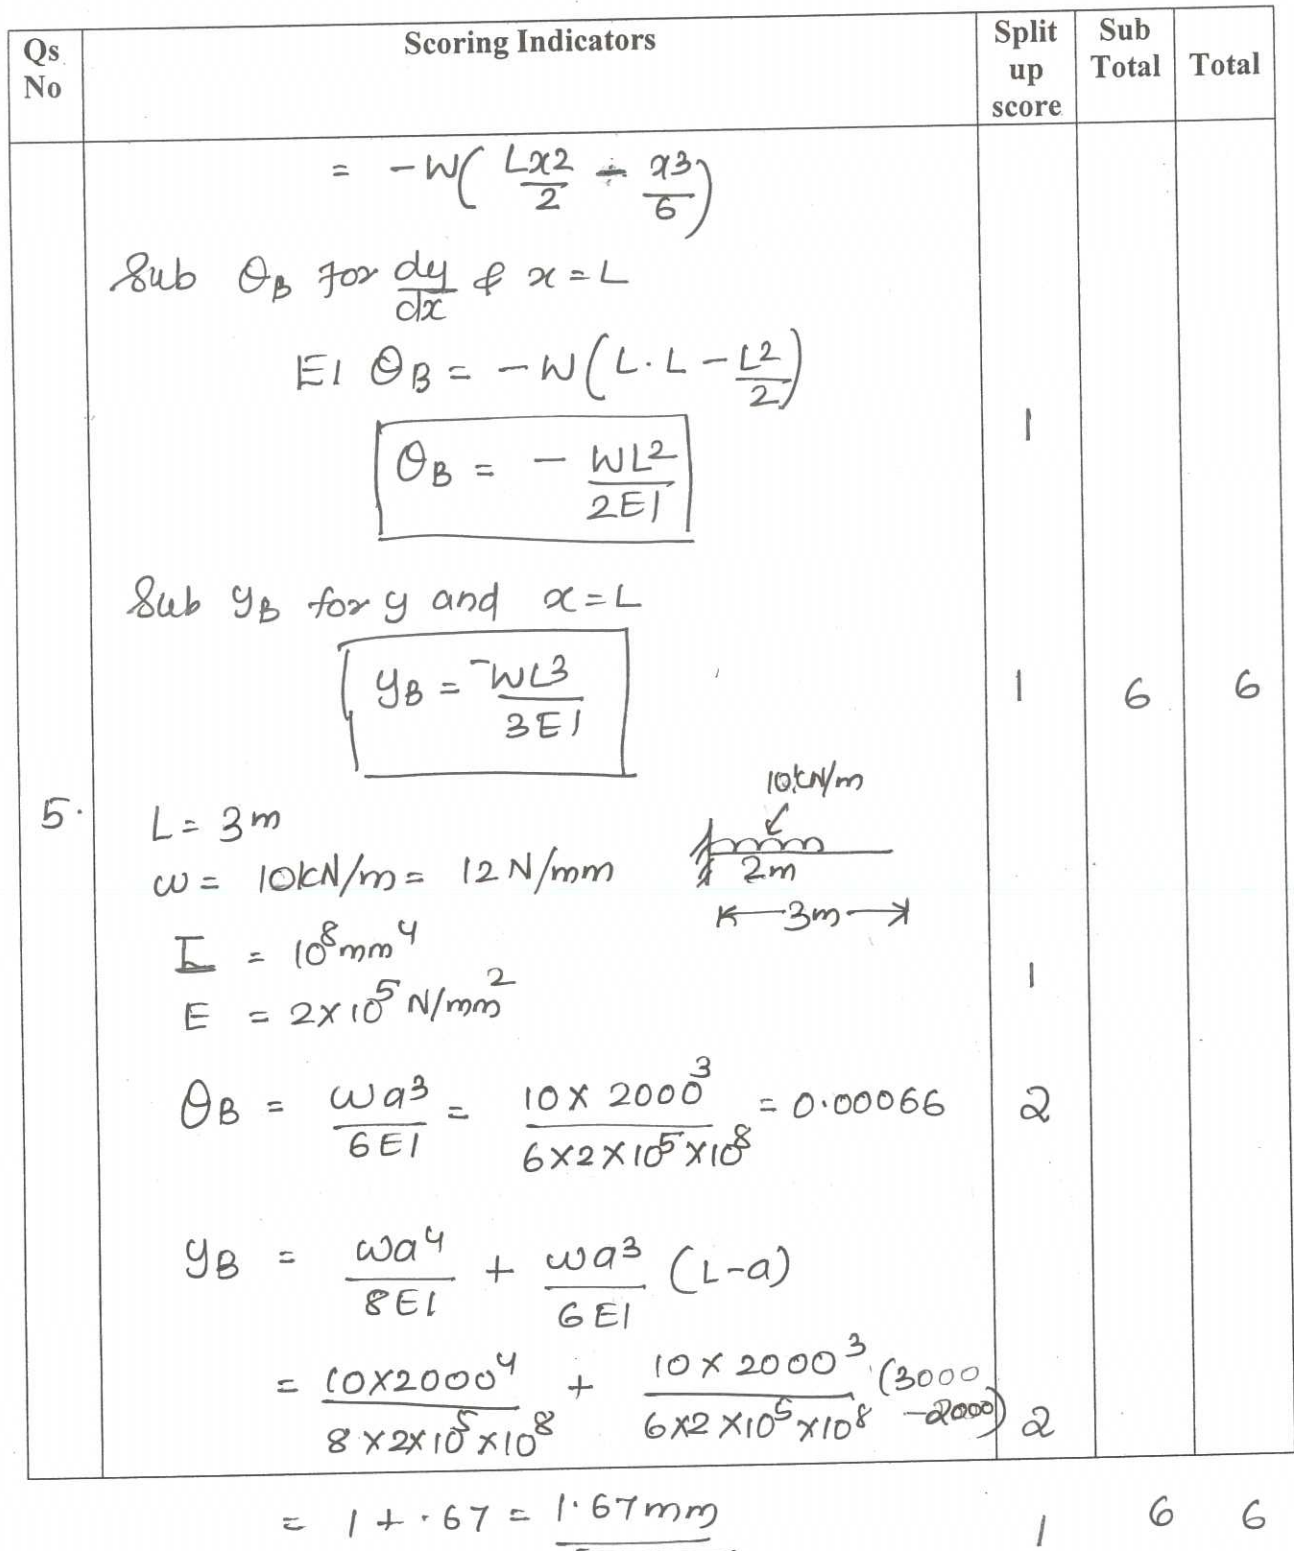 Qs No | Scoring Indicators | Split up score | Sub Total | Total
= -W( Lx2/2 - x3/6 )
Sub θB for dy/dx & x = L
EI θB = -W( L.L - L2/2 )
θB = - WL2/2EI | 1
Sub yB for y and x = L
yB = -WL3/3EI | 1 | 6 | 6
5. L = 3m
10kN/m
w = 10kN/m = 12 N/mm
2m
3m
I = 10⁸ mm⁴
E = 2×10⁵ N/mm² | 1
θB = wa3/6EI = 10 × 2000³/6×2×10⁵×10⁸ = 0.00066 | 2
yB = wa4/8EI + wa3/6EI (L-a)
= 10×2000⁴/8×2×10⁵×10⁸ + 10×2000³/6×2×10⁵×10⁸ (3000 -2000) | 2
= 1 + .67 = 1.67mm | 1 | 6 | 6